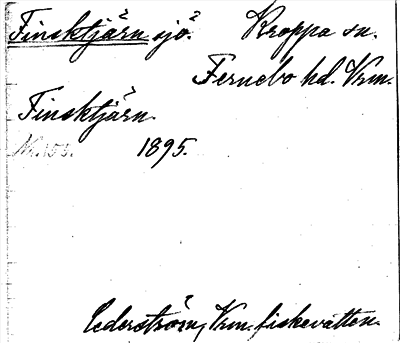 Finsktjärn sjö? Kroppa sn.
Fernebo hd. Vrm.
Finsktjärn.
Nr. 153. 1895.
Cederström, Vrm. fiskevatten.